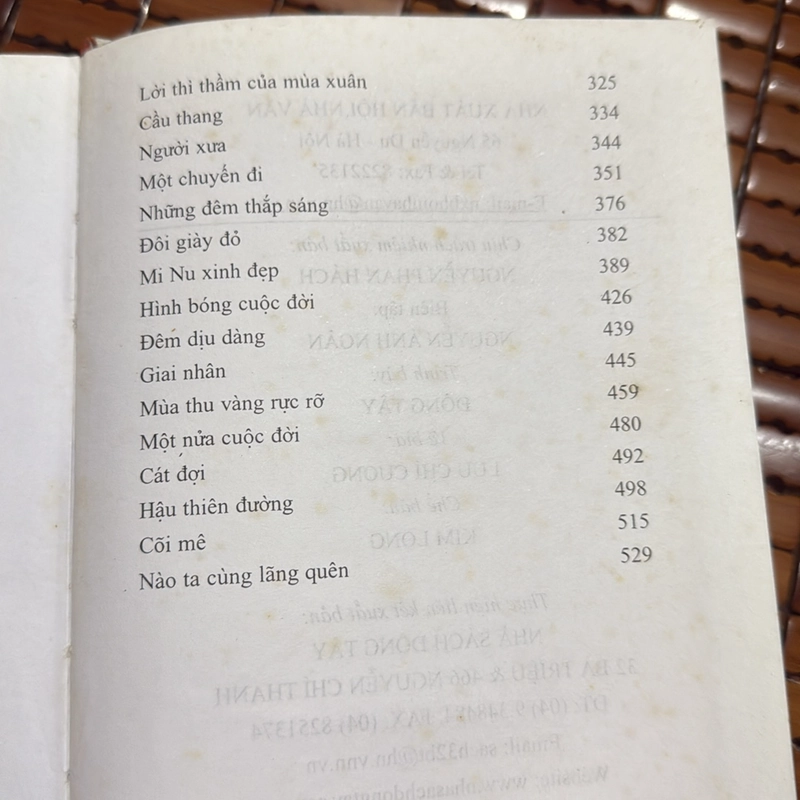 Lời thì thầm của mùa xuân 325
Cầu thang 334
Người xưa 344
Một chuyến đi 351
Những đêm thắp sáng 376
Đôi giày đỏ 382
Mi Nu xinh đẹp 389
Hình bóng cuộc đời 426
Đêm dịu dàng 439
Giai nhân 445
Mùa thu vàng rực rỡ 459
Một nửa cuộc đời 480
Cát đợi 492
Hậu thiên đường 498
Cõi mê 515
Nào ta cùng lãng quên 529